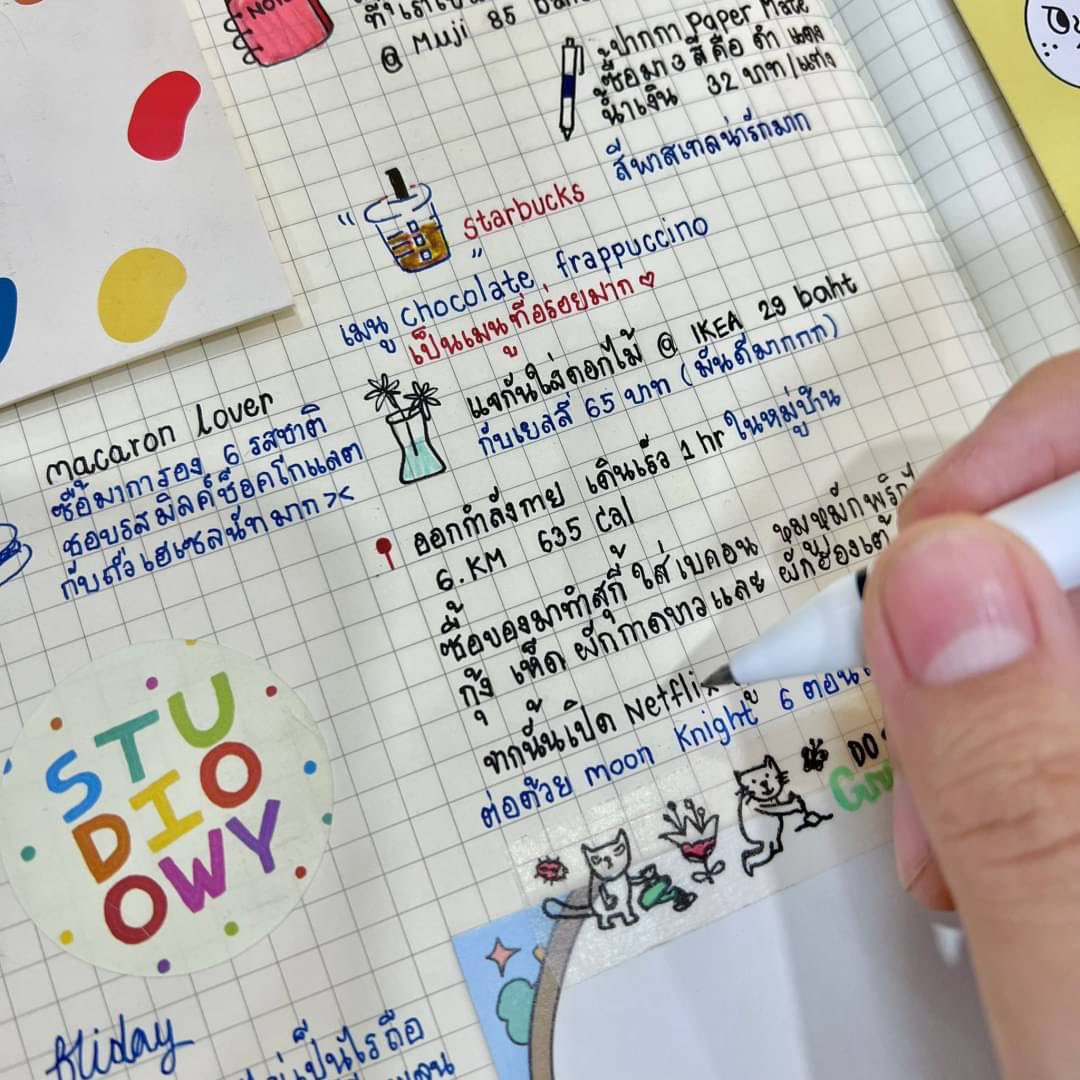 NOTE
@ Muji 85 baht
ปากกา Paper Mate
ซื้อมา 3 สีคือ ดำ แดง
น้ำเงิน 32 บาท/แท่ง
สีพาสเทลน่ารักมาก
" starbucks "
เมนู chocolate frappuccino
เป็นเมนูที่อร่อยมาก ♡
แจกันใส่ดอกไม้ @ IKEA 29 baht
กับเยลลี่ 65 บาท (มันดีมากกก)
macaron lover
ซื้อมาการอง 6 รสชาติ
ชอบรสมิลค์ช็อคโกแลต
กับถั่วเฮเซลนัทมาก ><
ออกกำลังกาย เดินเร็ว 1 hr ในหมู่บ้าน
6.KM 635 Cal
ซื้อของมาทำสุกี้ ใส่เบคอน หมูหมักพริกไ
กุ้ง เห็ด ผักกาดขาวและ ผักฮ่องเต้
จากนั้นเปิด Netflix ดู
ต่อด้วย moon Knight 6 ตอน
DO
STU
DIO
OWY
Friday
เป็นไร ถือ